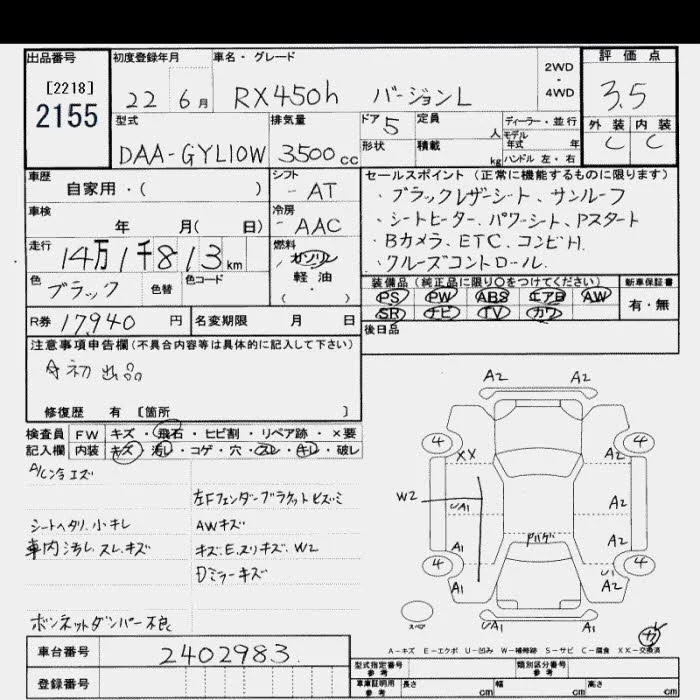 出品番号 初度登録年月 車名・グレード 2WD・4WD 評価点
[2218]
2155
22 6月 RX450h バージョンL 3.5
型式 排気量 ドア 5 定員 人 ディーラー・並行 外装 内装
モデル年式 年 C C
DAA-GYL10W 3500cc 形状 積載 kg ハンドル 左・右
車歴 シフト セールスポイント (正常に機能するものに限ります)
自家用・( ) -AT ・ブラックレザーシート、サンルーフ
車検 冷房 ・シートヒーター、パワーシート、Pスタート
年 月( 日) -AAC ・Bカメラ、ETC、コンビH.
走行 燃料 ・クルーズコントロール.
14万1千813km ガソリン
軽・油
( )
色 色替 色コード 装備品 (純正品に限り○をつけてください) 新車保証書
ブラック PS PW ABS エアB AW 有・無
SR ナビ TV カワ
R券 17,940円 名変期限 月 日 後日品
注意事項申告欄 (不具合内容等は具体的に記入して下さい)
初出品
修復歴 有 [箇所 ]
検査員 FW キズ・飛石・ヒビ割・リペア跡・×要
記入欄 内装 キズ・汚し・コゲ・穴・スレ・キレ・破レ
左Fフェンダーブラケットヒズミ
シートヘタリ、小キレ AWキズ
車内汚レ、スレ、キズ キズ、E、スリキズ、W2
Dミラーキズ
ボンネットダンパー不良
A2 A2
4 4
XX A2
W2 UA1 A2
A1 A2
4 4
A1 U1 A2
スペア UA1 A1
A-キズ E-エクボ U-凹み W-補修跡 S-サビ C-腐食 XX-交換済
車台番号 2402983.
型式指定番号 参考 類別区分番号 参考
登録番号 車庫証明用 参考 長さ cm 幅 cm 高さ cm